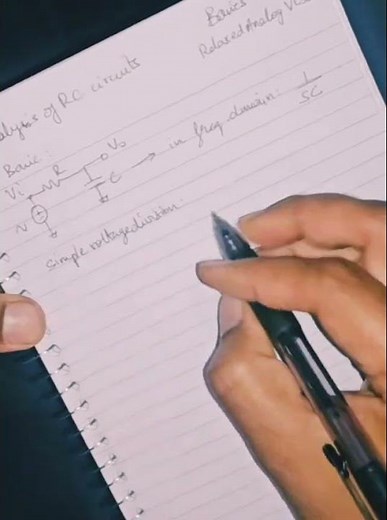 Basics
Relaxed Analog
alysis of RC circuits
Basic:
Vi R Vo
C → in freq. domain: 1/SC
simple voltage division